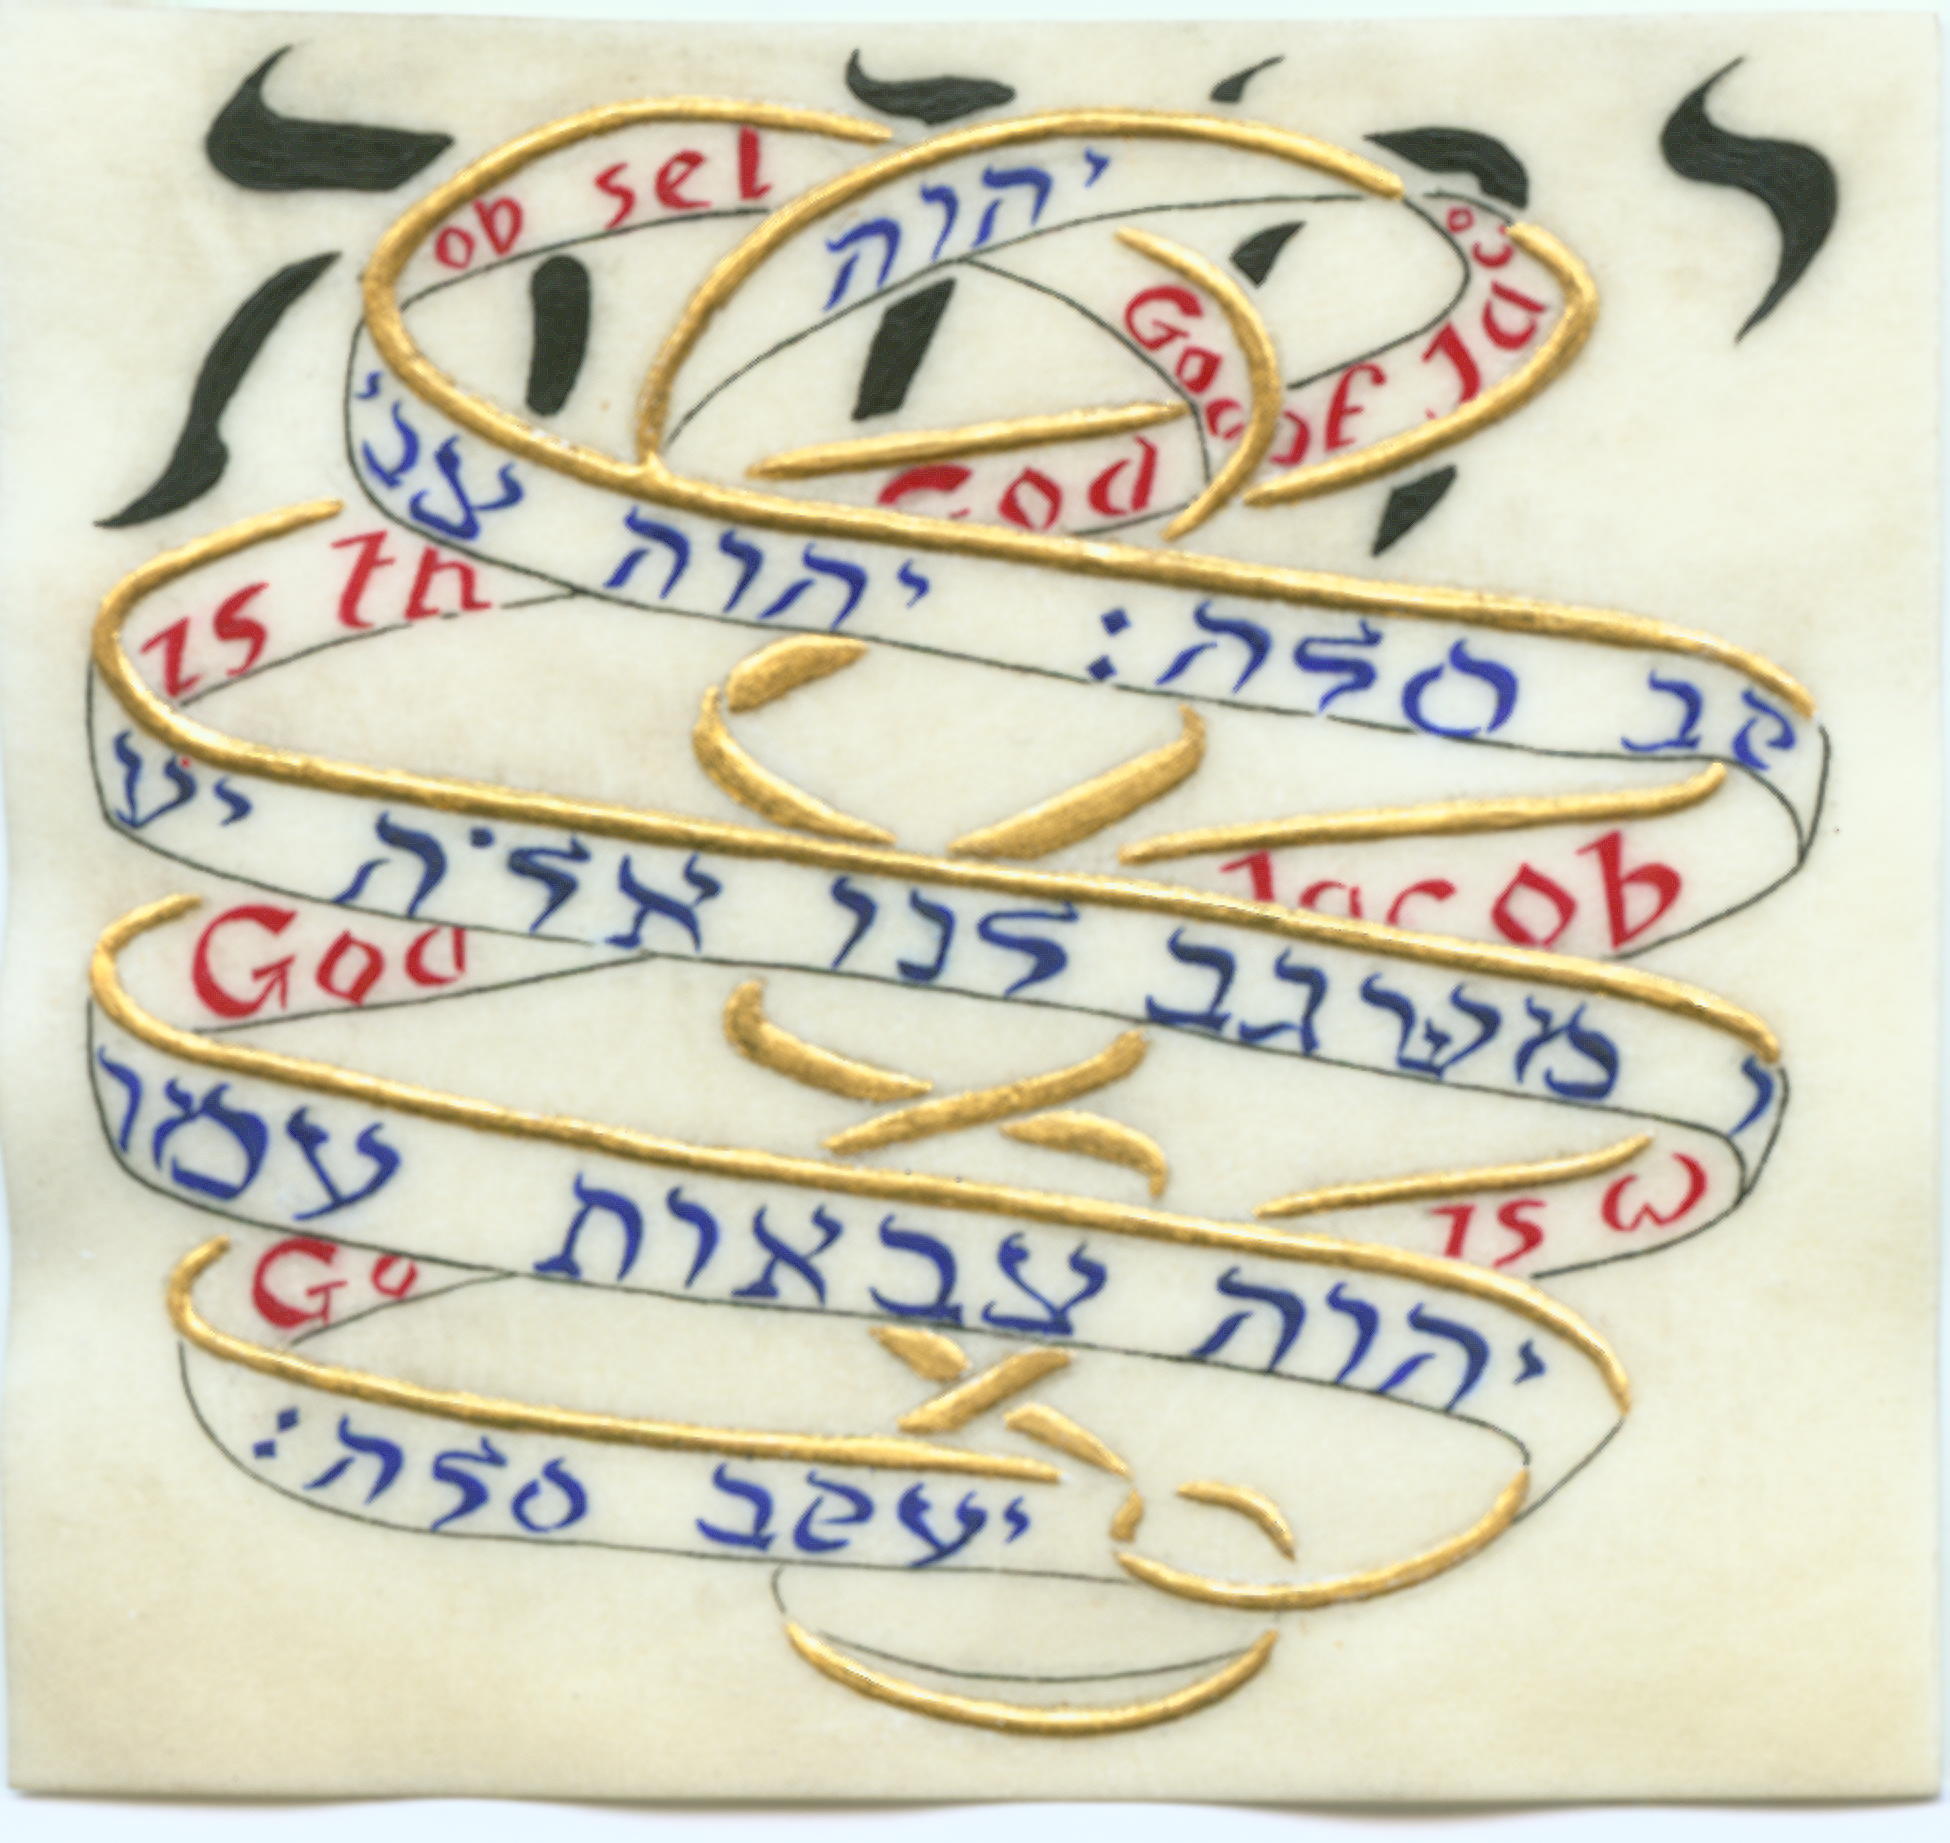 ob sel
יהוה
God
of Ja
God
קב סלה: יהוה צבי
is th
Jacob
ו משגב לנו אלהי יע
God
is w
יהוה צבאות עמנ
Go
יעקב סלה: